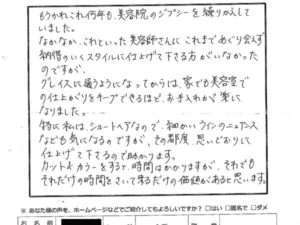 もうかれこれ何年も、美容院のジプシーを繰りかえして
いました。
なかなか、これといった美容師さんに これまでめぐり会えず
納得のいくスタイルに仕上げて下さる方がいなかった
のですが、
グレイスに通うようになってからは、家でも美容室で
の仕上がりをキープできるほど、お手入れが楽に
なりました。
特に私は、ショートヘアなので、細かいラインのニュアンス
なども気になるのですが、その都度、思いどおりに
仕上げて下さるので助かります。
カットとカラーをすると、時間はかかりますが、それでも
それだけの時間をさいて来るだけの価値があると思います。
※ あなた様の声を、ホームページなどでご紹介してもよろしいですか？ □はい □匿名で □ダメ
お 名 前